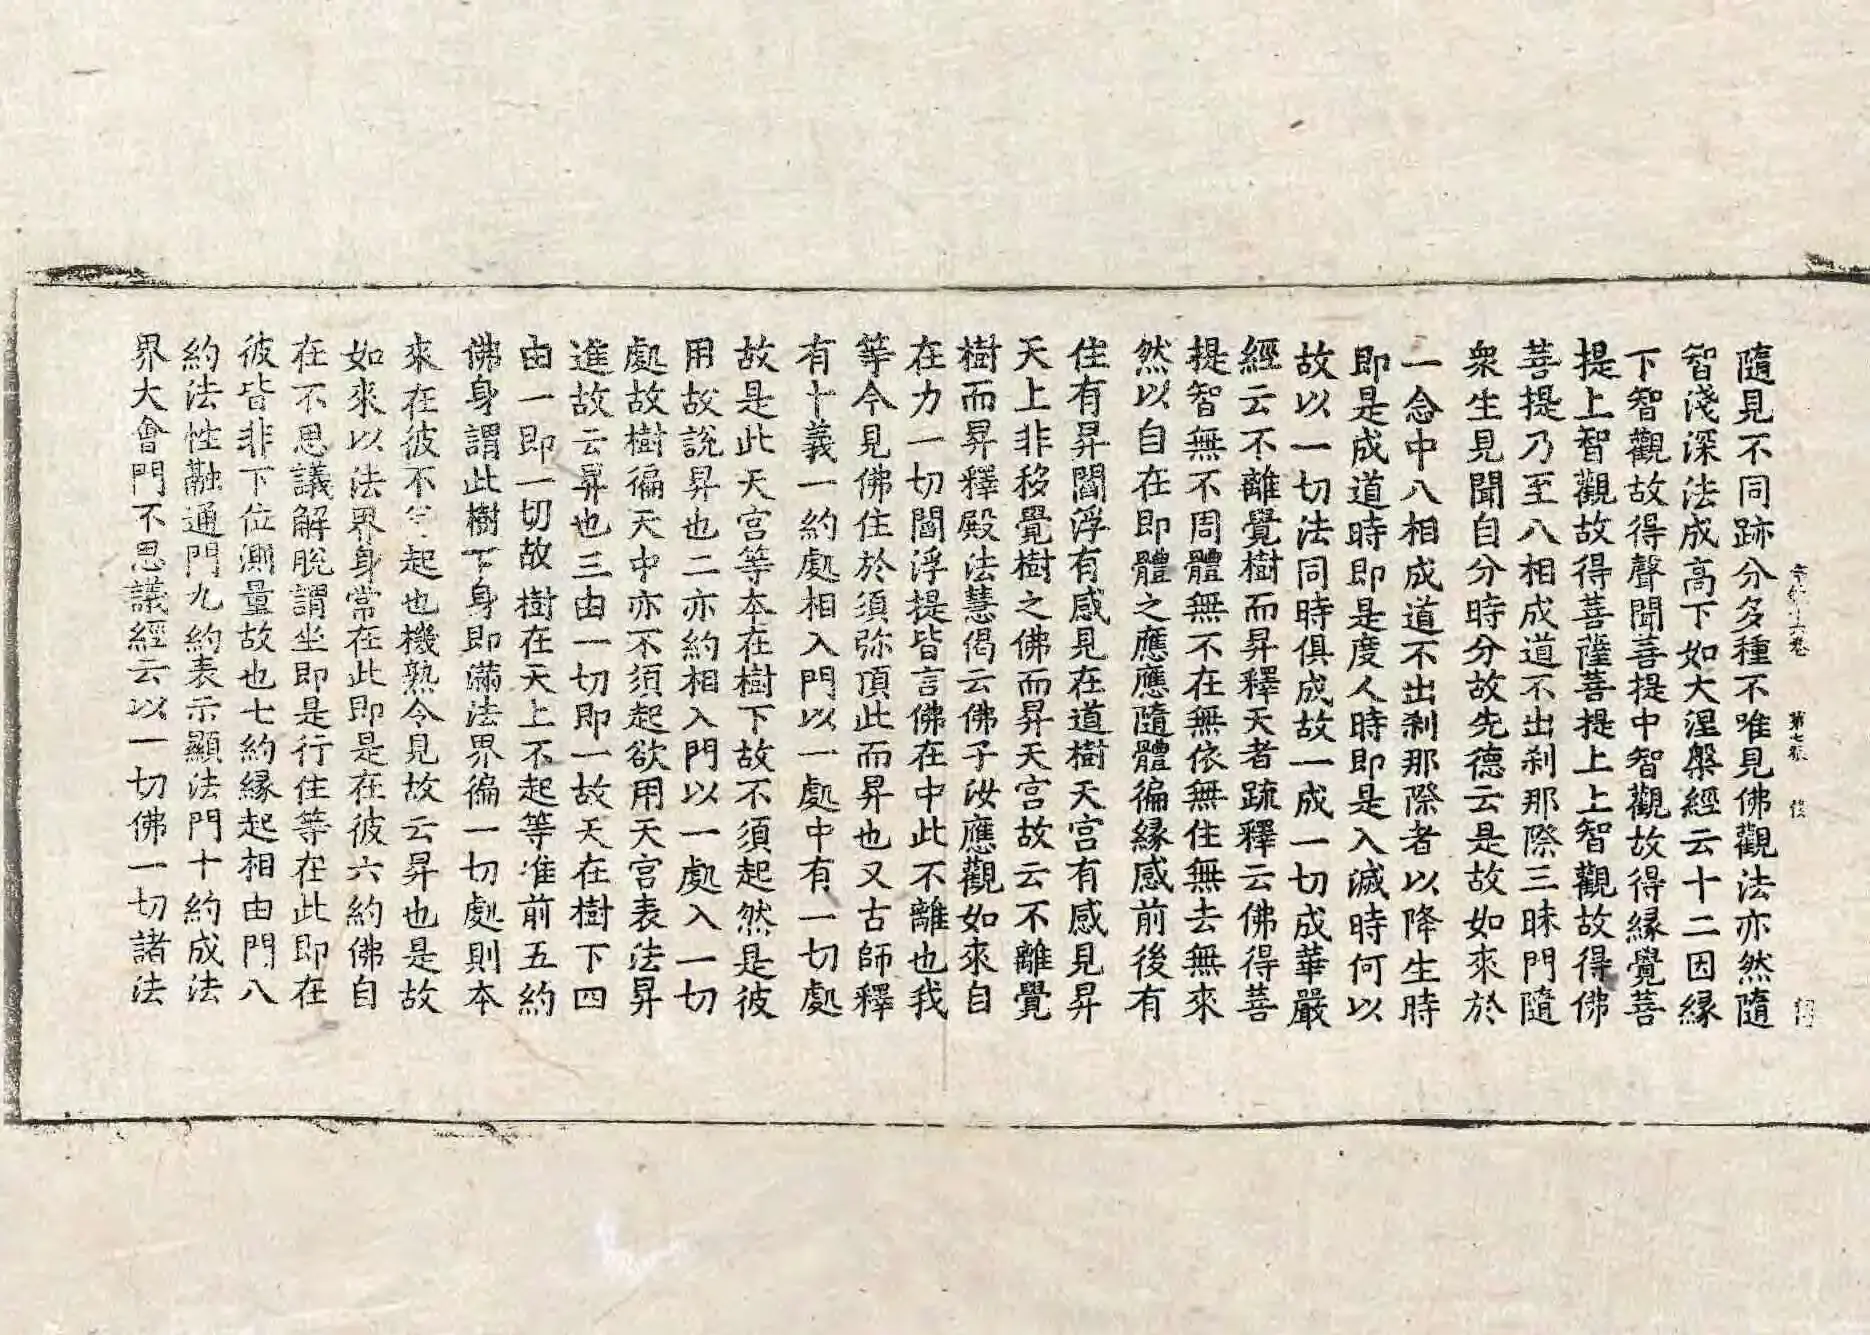 隨見不同跡分多種不唯見佛觀法亦然隨
智淺深法成高下如大涅槃經云十二因緣
下智觀故得聲聞菩提中智觀故得緣覺菩
提上智觀故得菩薩菩提上上智觀故得佛
菩提乃至八相成道不出剎那際三昧門隨
衆生見聞自分時分故先德云是故如來於
一念中八相成道不出剎那際者以降生時
即是成道時即是度人時即是入滅時何以
故以一切法同時俱成故一成一切成華嚴
經云不離覺樹而昇釋天者疏釋云佛得菩
提智無不周體無不在無依無住無去無來
然以自在即體之應應隨體徧緣感前後有
住有昇閻浮有感見在道樹天宮有感見昇
天上非移覺樹之佛而昇天宮故云不離覺
樹而昇釋殿法慧偈云佛子汝應觀如來自
在力一切閻浮提皆言佛在中此不離也我
等今見佛住於須弥頂此而昇也又古師釋
有十義一約處相入門以一處中有一切處
故是此天宮等本在樹下故不須起然是彼
用故說昇也二亦約相入門以一處入一切
處故樹徧天中亦不須起欲用天宮表法昇
進故云昇也三由一切即一故天在樹下四
由一即一切故樹在天上不起等准前五約
佛身謂此樹下身即滿法界徧一切處則本
來在彼不起也機熟令見故云昇也是故
如來以法界身常在此即是在彼六約佛自
在不思議解脫謂坐即是行住等在此即在
彼皆非下位測量故也七約緣起相由門八
約法性融通門九約表示顯法門十約成法
界大會門不思議經云以一切佛一切諸法